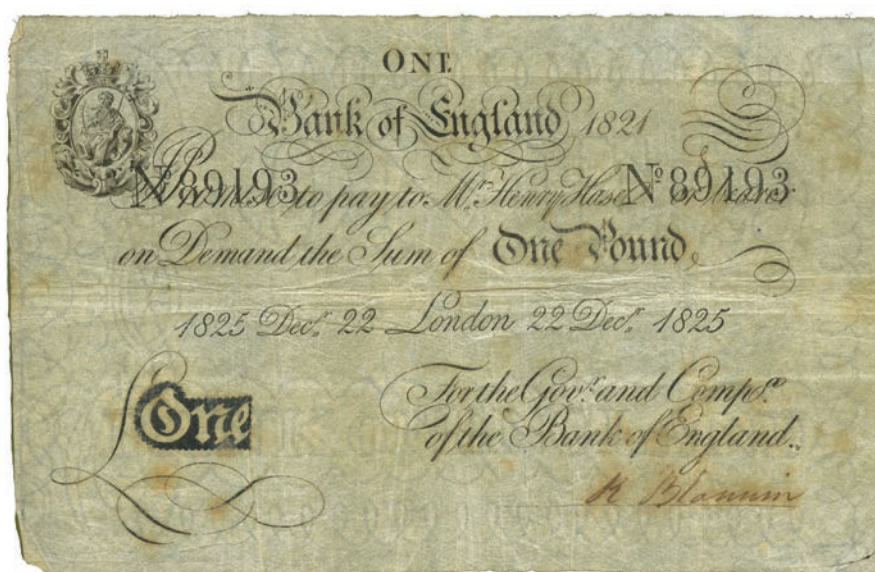 ONE
Bank of England 1821
Nº 89193 Nº 89193
I Promise to pay to Mr. Henry Hase or bearer
on Demand the Sum of One Pound
1825 Decr. 22 London 22 Decr. 1825
For the Govr. and Compa.
£One
of the Bank of England.